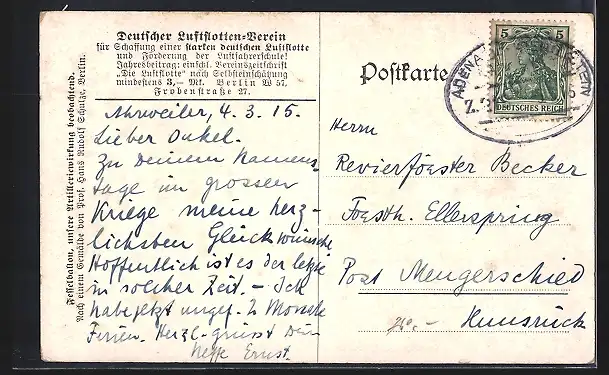 Deutscher Luftflotten-Verein
für Schaffung einer starken deutschen Luftflotte
und Förderung der Luftfahrerschule!
Jahresbeitrag: einschl. Vereinszeitschrift
„Die Luftflotte“ nach Selbsteinschätzung
mindestens 3,— Mk. Berlin W 57,
Frobenstraße 27.
Ahrweiler, 4. 3. 15.
Lieber Onkel.
Zu Deinem Namens-
tage im grossen
Kriege meine herz-
lichsten Glückwünsche
Hoffentlich ist es der letzte
in solcher Zeit. - Ich
habe jetzt ungef. 2 Monate
Ferien. Herzl. grüsst Dein
Neffe Ernst.
Fesselballon, unsere Artilleriewirkung beobachtend.
Nach einem Gemälde von Prof. Hans Rudolf Schulze, Berlin.
Postkarte
5 5
DEUTSCHES REICH
ADENAU
Z.
Herrn
Revierförster Becker
Forsth. Ellerspring
Post Mengerschied
Hunsrück